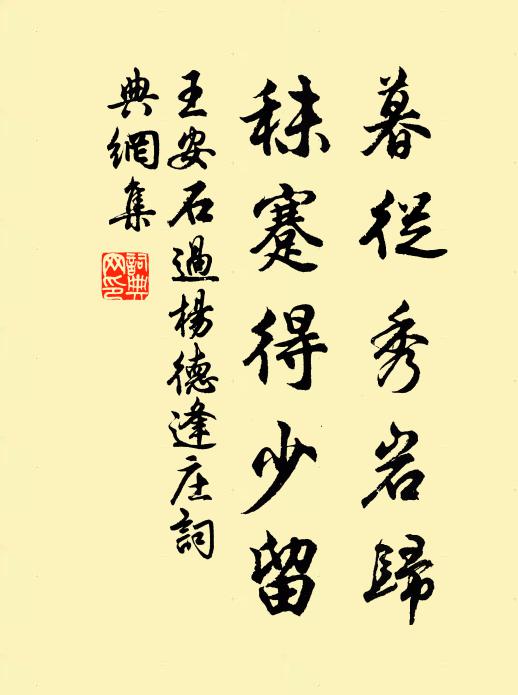 暮從秀岩歸
秣蹇得少留
王安石過楊德逢庄詞
典網集
詞典网印